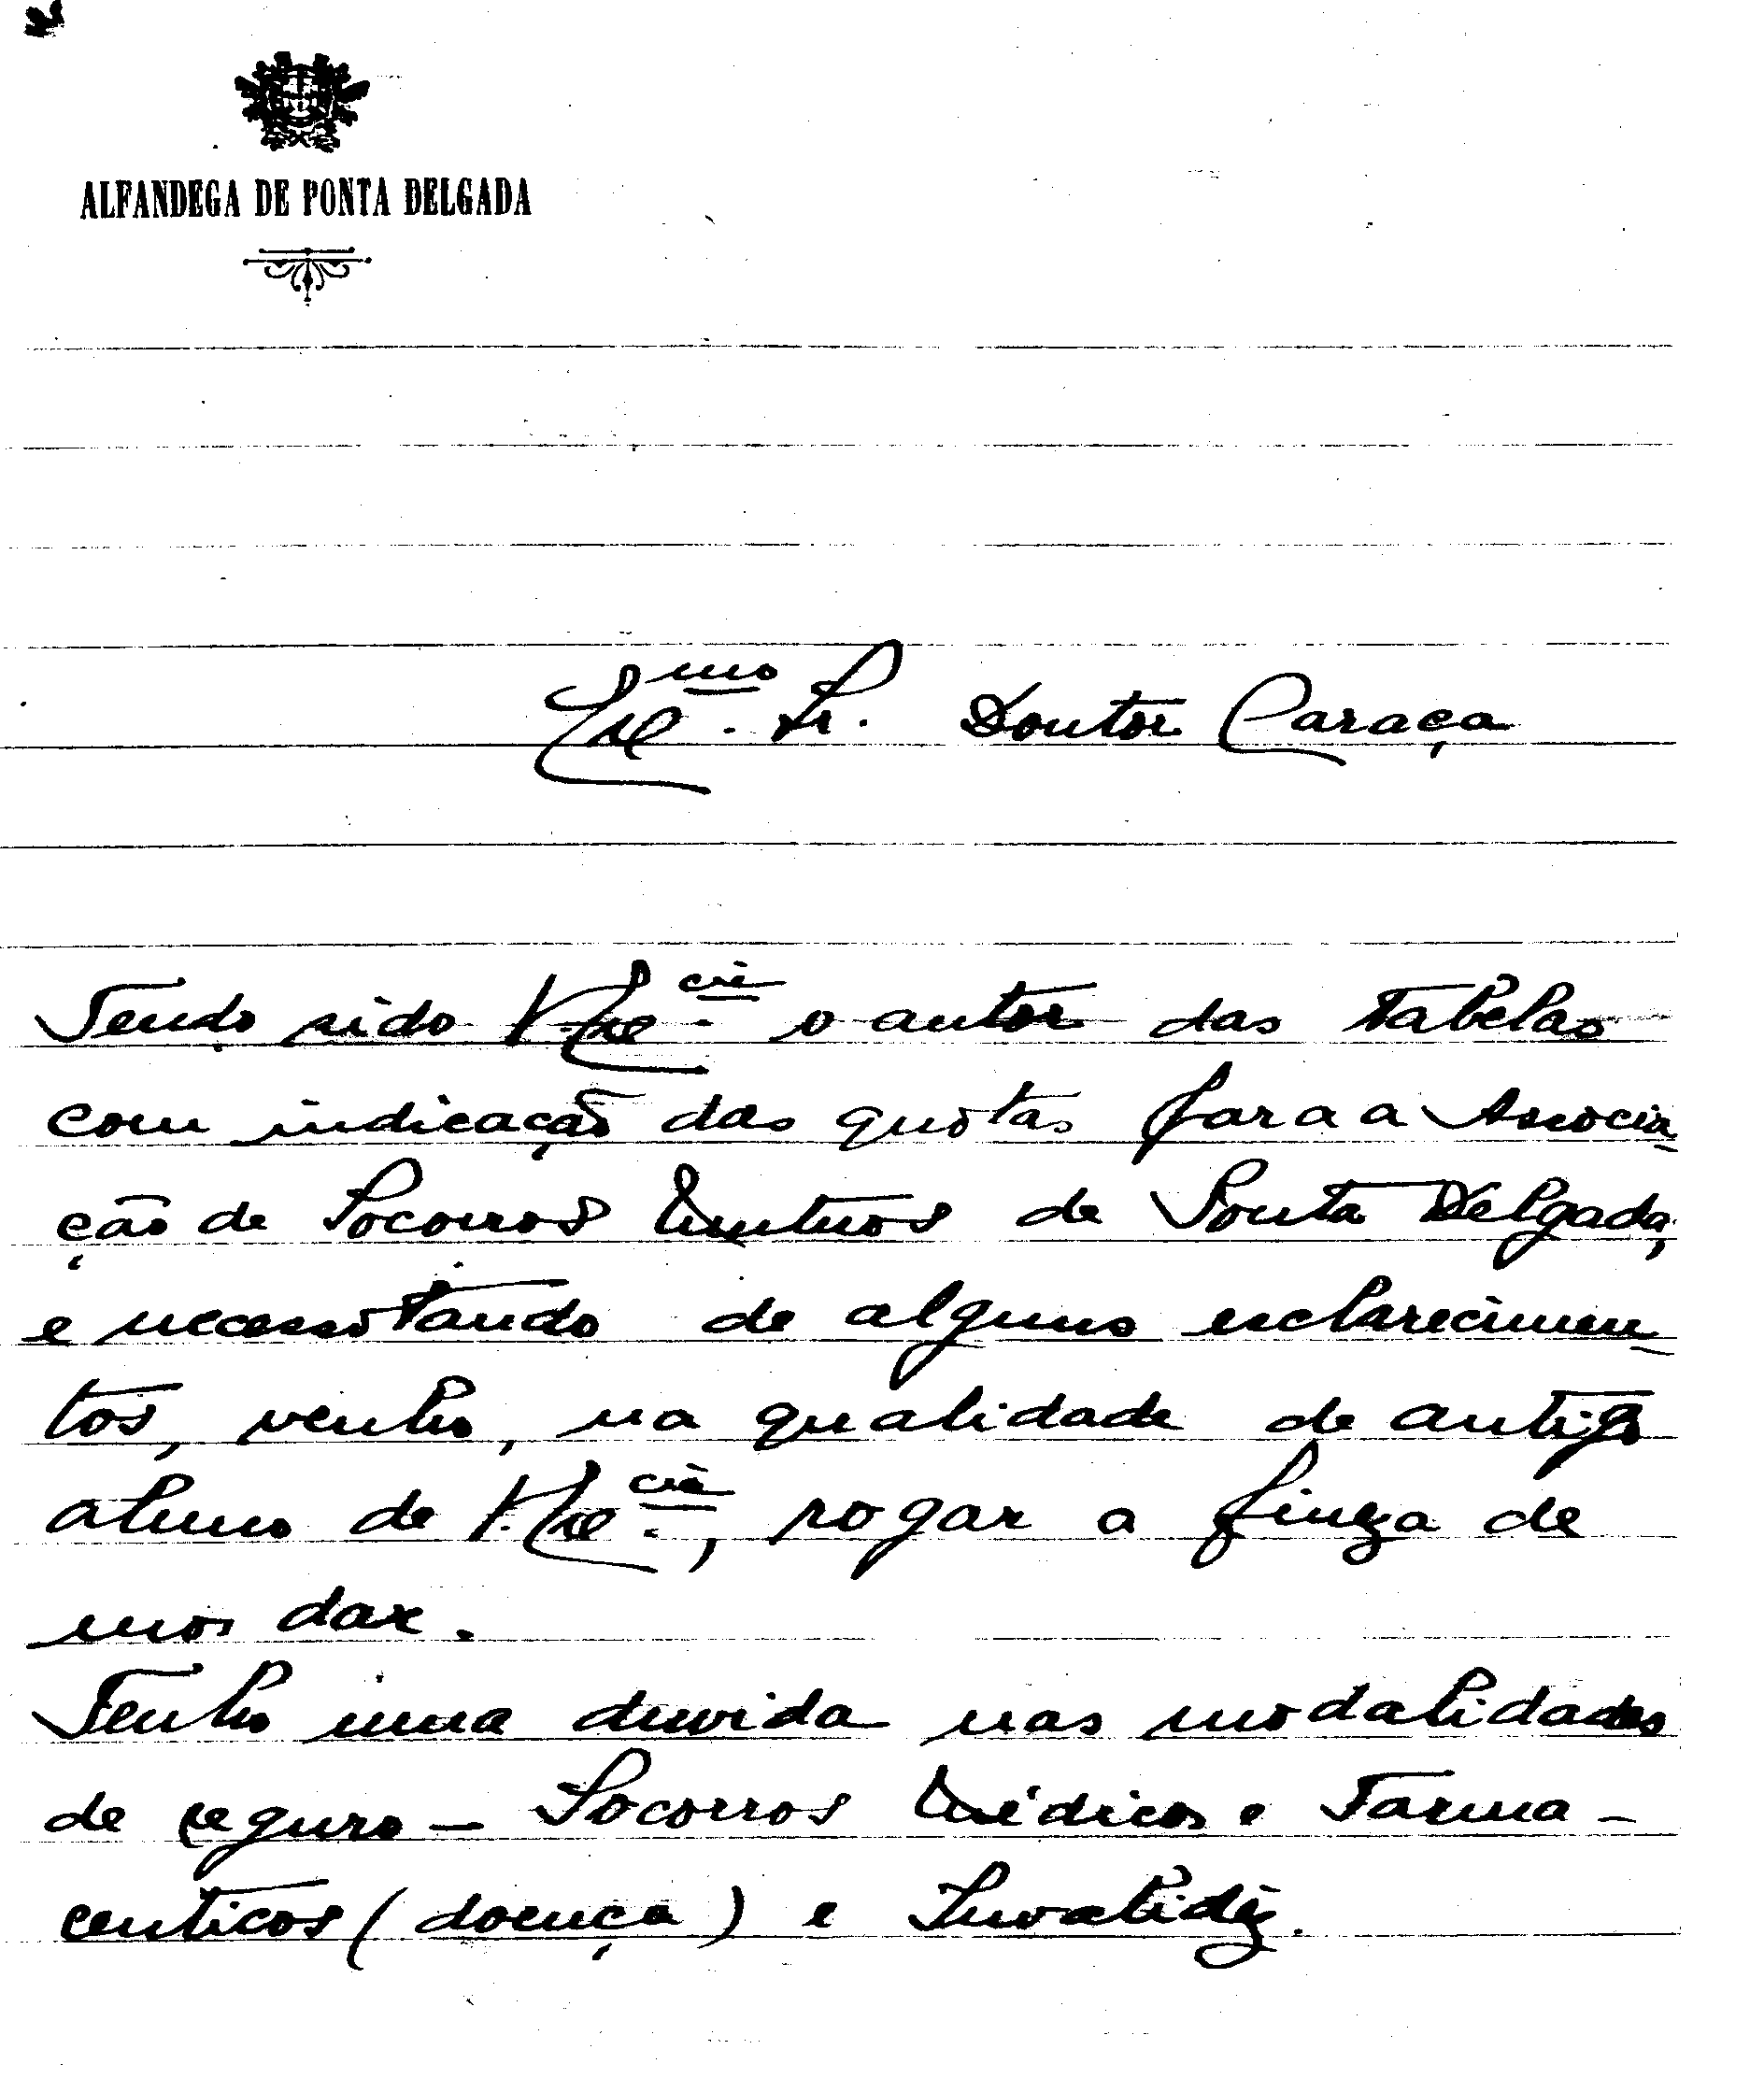 ALFANDEGA DE PONTA DELGADA
Exmo. Sr. Doutor Caraça
Tendo sido V. Excia. o autor das tabelas
com indicação das quotas para a Associa-
ção de Socorros Mutuos de Ponta Delgada,
e necessitando de alguns esclarecimen-
tos, venho, na qualidade de antigo
aluno de V. Excia., rogar a fineza de
mos dar.
Tenho uma duvida nas modalidades
de seguro – Socorros Médicos e Farma-
ceuticos (doença) e Invalidêz.